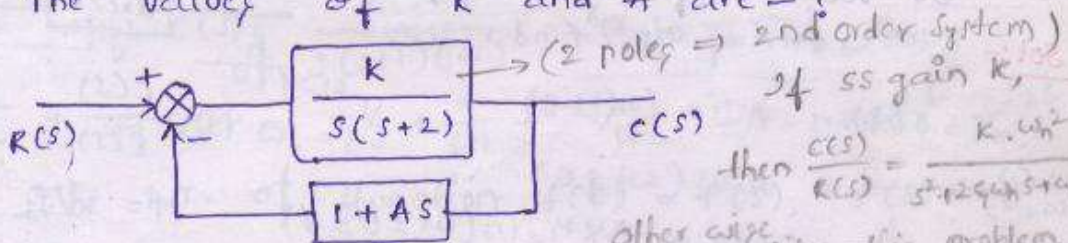 The values of K and A are
(2 poles ⇒ 2nd order system)
If ss gain K,
K
S(S+2)
+
-
R(S)
C(S)
then C(S)/R(S) = K.ωn²
S²+2ζωn S+ω
1+AS
Other wise
problem